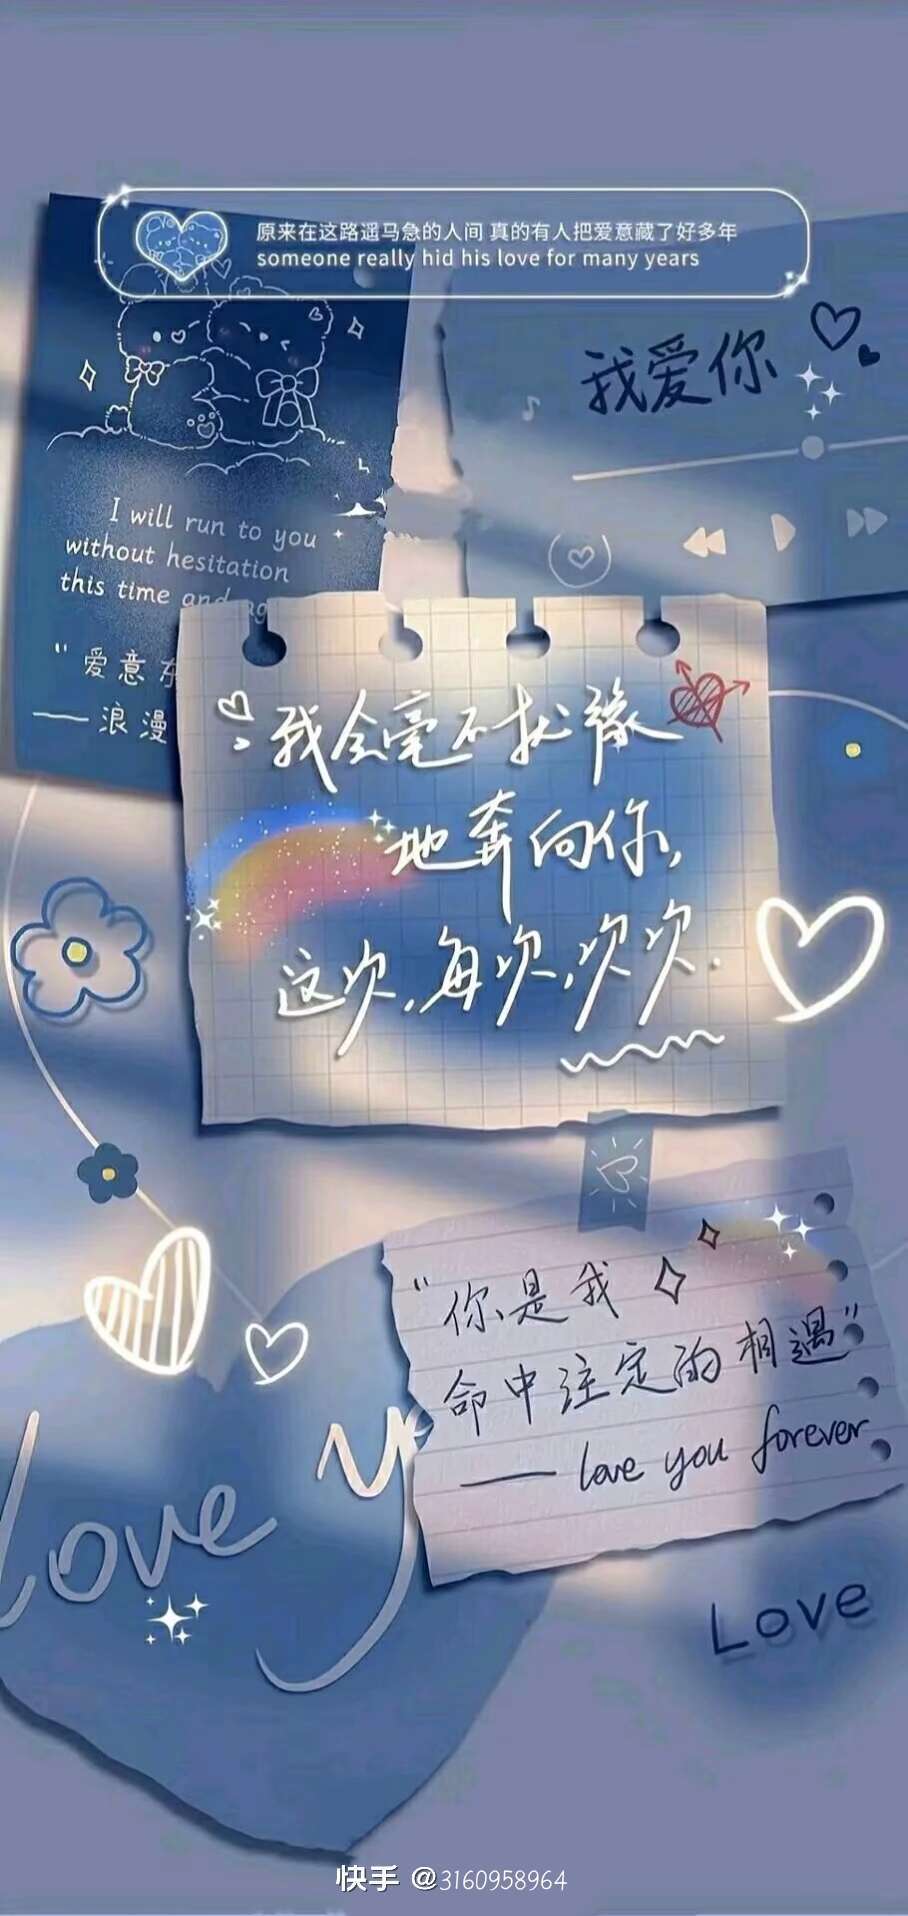 原来在这路遥马急的人间 真的有人把爱意藏了好多年
someone really hid his love for many years
我爱你
I will run to you
without hesitation
this time and
“爱意
——浪漫
我会毫不犹豫
地奔向你,
这次,每次,次次.
“你是我
命中注定的相遇”
——love you forever
love y
Love
快手 @3160958964